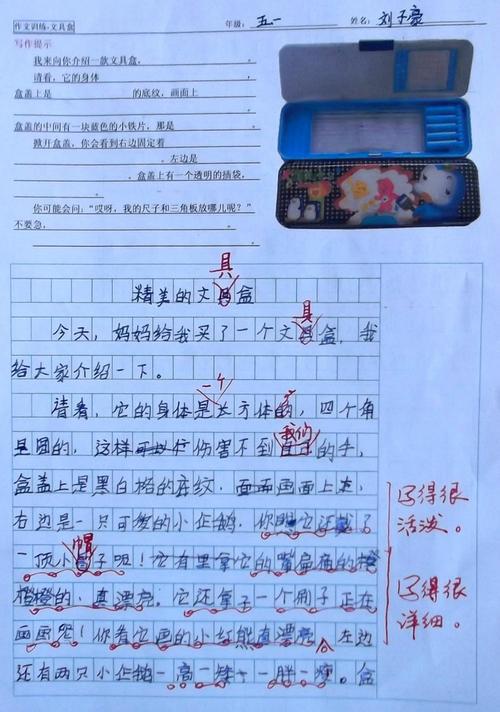 作文训练·文具盒
年级：五一 姓名：刘子豪
写作提示
我来向你介绍一款文具盒，
请看，它的身体
盒盖上是 的底纹，画面上
盒盖的中间有一块蓝色的小铁片，那是
掀开盒盖，你会看到右边固定着
左边是
盒盖上有一个透明的插袋，
你可能会问：“哎呀，我的尺子和三角板放哪儿呢？”
不要急，
具
精美的文具盒
具
今天，妈妈给我买了一个文具盒，我
给大家介绍一下。
一个
请看，它的身体是长方体的，四个角
是圆的，这样伤害不到我们的手，
盒盖上是黑白格的底纹，画面上
右边是一只可爱的小企鹅，你瞧它还戴了
帽
一顶小帽子呢！它有里拿它的嘴扁扁的橙
橙橙的，真漂亮。它还拿了一个刷子正在
画画呢！你看它画的小红熊真漂亮。左边
还有两只小企鹅一高一矮，一胖一瘦。盒
写得很
活泼。
写得很
详细。